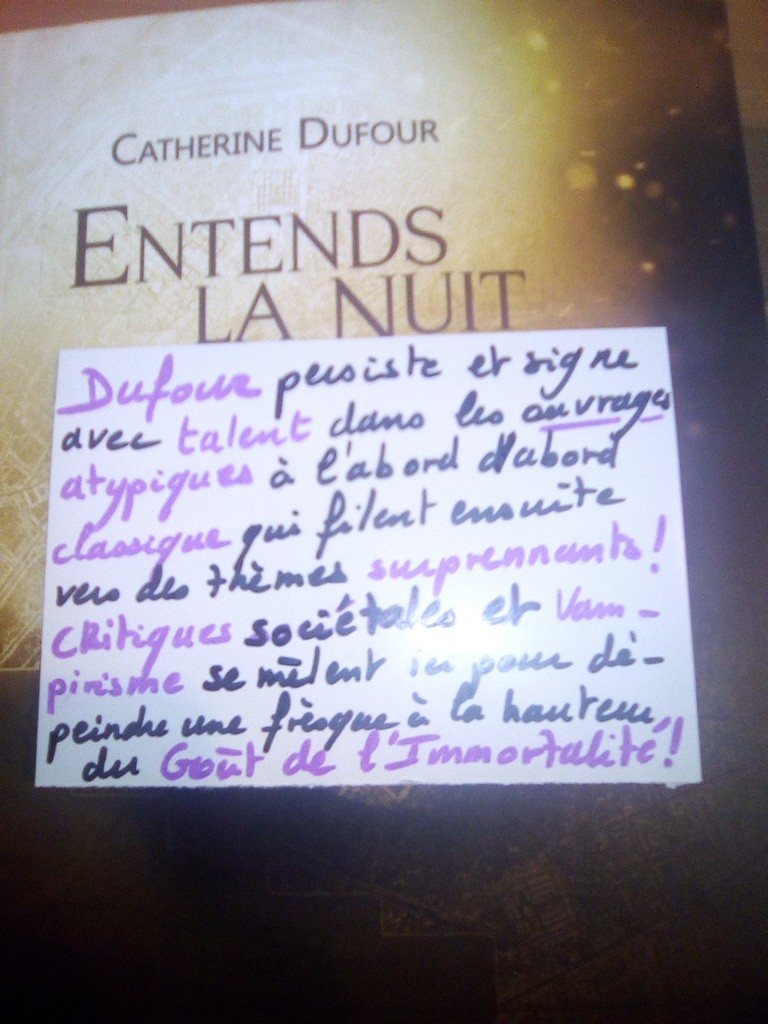 CATHERINE DUFOUR
ENTENDS
LA NUIT
Dufour persiste et signe
avec talent dans les ouvrages
atypiques à l'abord d'abord
classique qui filent ensuite
vers des thèmes surprennants!
Critiques sociétales et Vam-
pirisme se mêlent ici pour dé-
peindre une frèsque à la hauteur
du Goût de l'Immortalité!